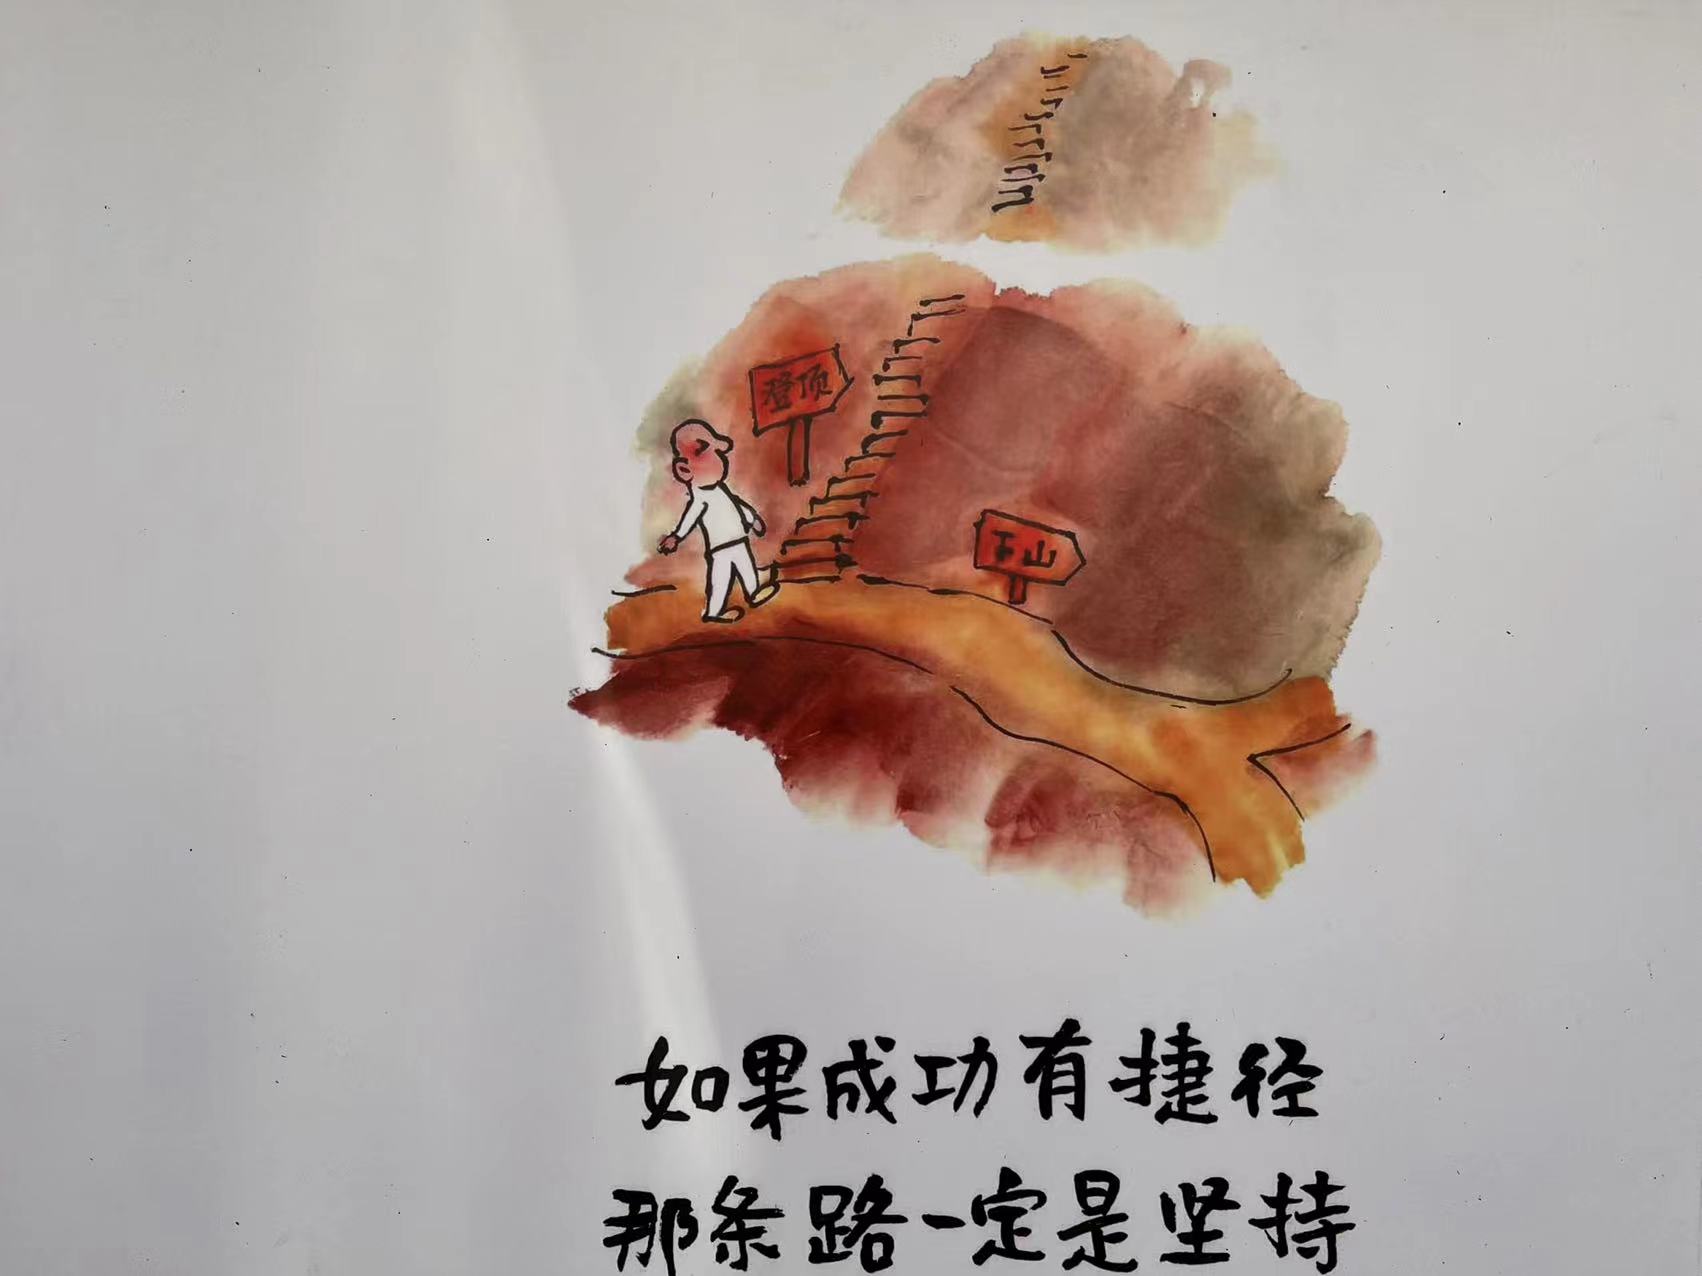 登顶
下山
如果成功有捷径
那条路一定是坚持